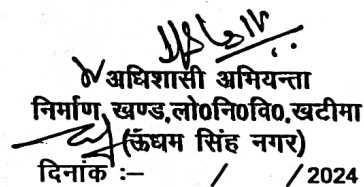 अधिशासी अभियन्ता
निर्माण खण्ड,लो0नि0वि0,खटीमा
(ऊधम सिंह नगर)
दिनांक :– / / 2024